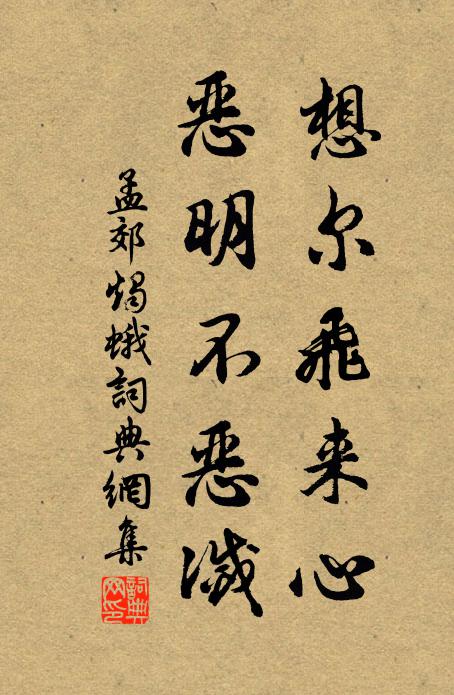 想尔飛来心
恶明不恶滅
孟郊燭蛾詞典網集
詞典网印